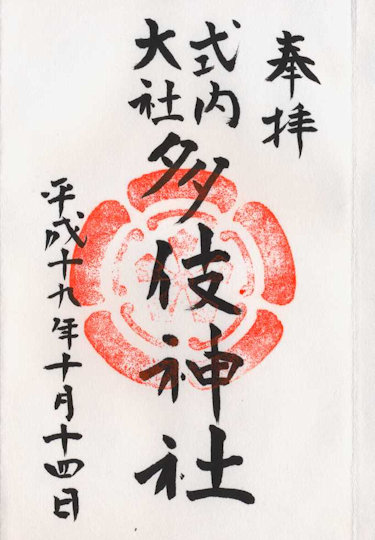 奉拝
式内
大社
多伎神社
平成十九年十月十四日